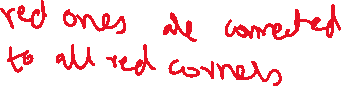 red ones are connected
to all red corners